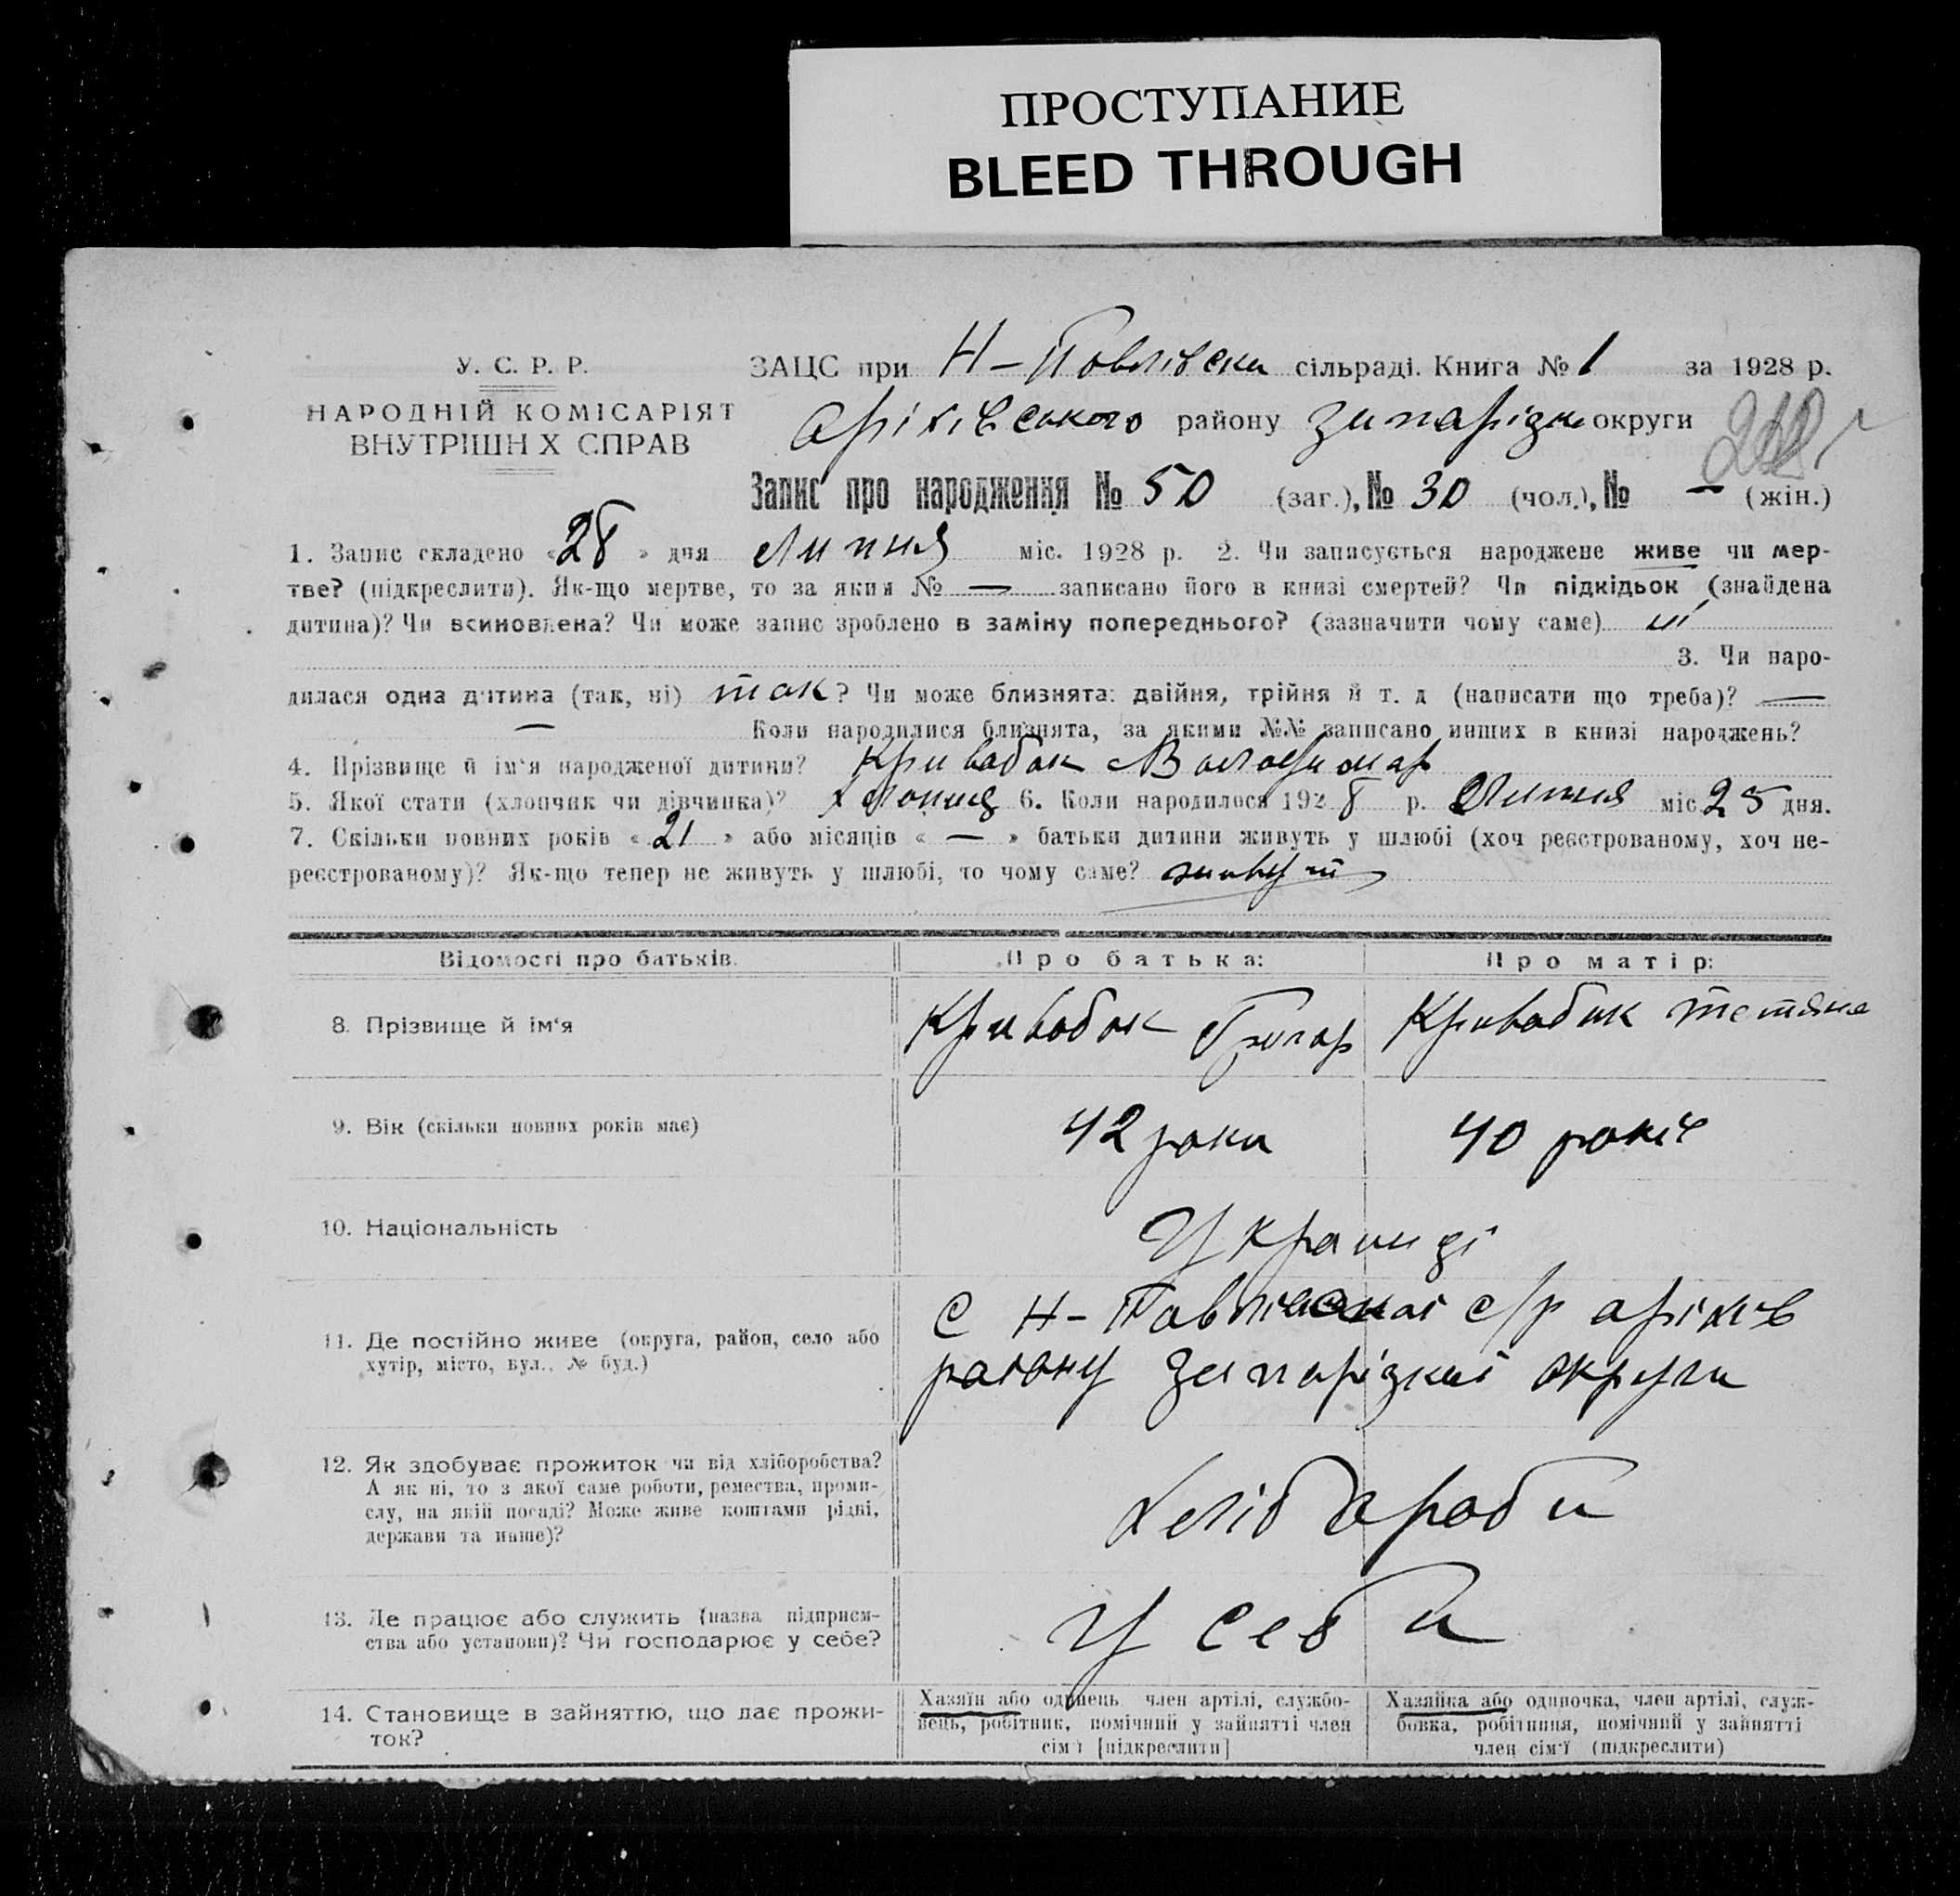 ПРОСТУПАНИЕ
BLEED THROUGH
У. С. Р. Р.
НАРОДНІЙ КОМІСАРІЯТ
ВНУТРІШН Х СПРАВ
ЗАЦС при Н-Повлівски сільраді. Книга № 1 за 1928 р.
Оріхівського району Запарізки округи
Запис про народження № 50 (заг.), № 30 (чол.), № — (жін.)
1. Запис складено «28» дня Липня міс. 1928 р. 2. Чи записується народжене живе чи мер-
тве? (підкреслити). Як-що мертве, то за яким № — записано його в книзі смертей? Чи підкідьок (знайдена
дитина)? Чи всиновлена? Чи може запис зроблено в заміну попереднього? (зазначити чому саме)
3. Чи наро-
дилася одна дитина (так, ні) так? Чи може близнята: двійня, трійня й т. д (написати що треба)? —
— Коли народилися близнята, за якими №№ записано инших в книзі народжень?
4. Прізвище й ім'я народженої дитини? Кривобок Володимар
5. Якої стати (хлопчик чи дівчинка)? хлопиц 6. Коли народилося 1928 р. Липня міс. 25 дня.
7. Скільки повних років «21» або місяців «—» батьки дитини живуть у шлюбі (хоч реєстрованому, хоч не-
реєстрованому)? Як-що тепер не живуть у шлюбі, то чому саме? живут
Відомості про батьків. Про батька: Про матір:
8. Прізвище й ім'я Кривобок Григор Кривобик Тетяна
9. Вік (скільки повних років має) 42 роки 40 років
10. Національність Украинці
11. Де постійно живе (округа, район, село або
хутір, місто, вул., № буд.)
С Н-Павлівскоі с/р оріхів
раіону Запарізкиі округи
12. Як здобуває прожиток чи від хліборобства?
А як ні, то з якої саме роботи, ремества, проми-
слу, на якій посаді? Може живе коштами рідні,
держави та инше)?
Хлібароби
13. Де працює або служить (назва підприєм-
ства або установи)? Чи господарює у себе?
У себи
14. Становище в зайняттю, що дає прожи-
ток?
Хазяїн або одинець член артілі, службо-
вець, робітник, помічний у зайнятті член
сім'ї [підкреслити]
Хазяйка або одиночка, член артілі, служ-
бовка, робітниця, помічний у зайнятті
член сім'ї (підкреслити)